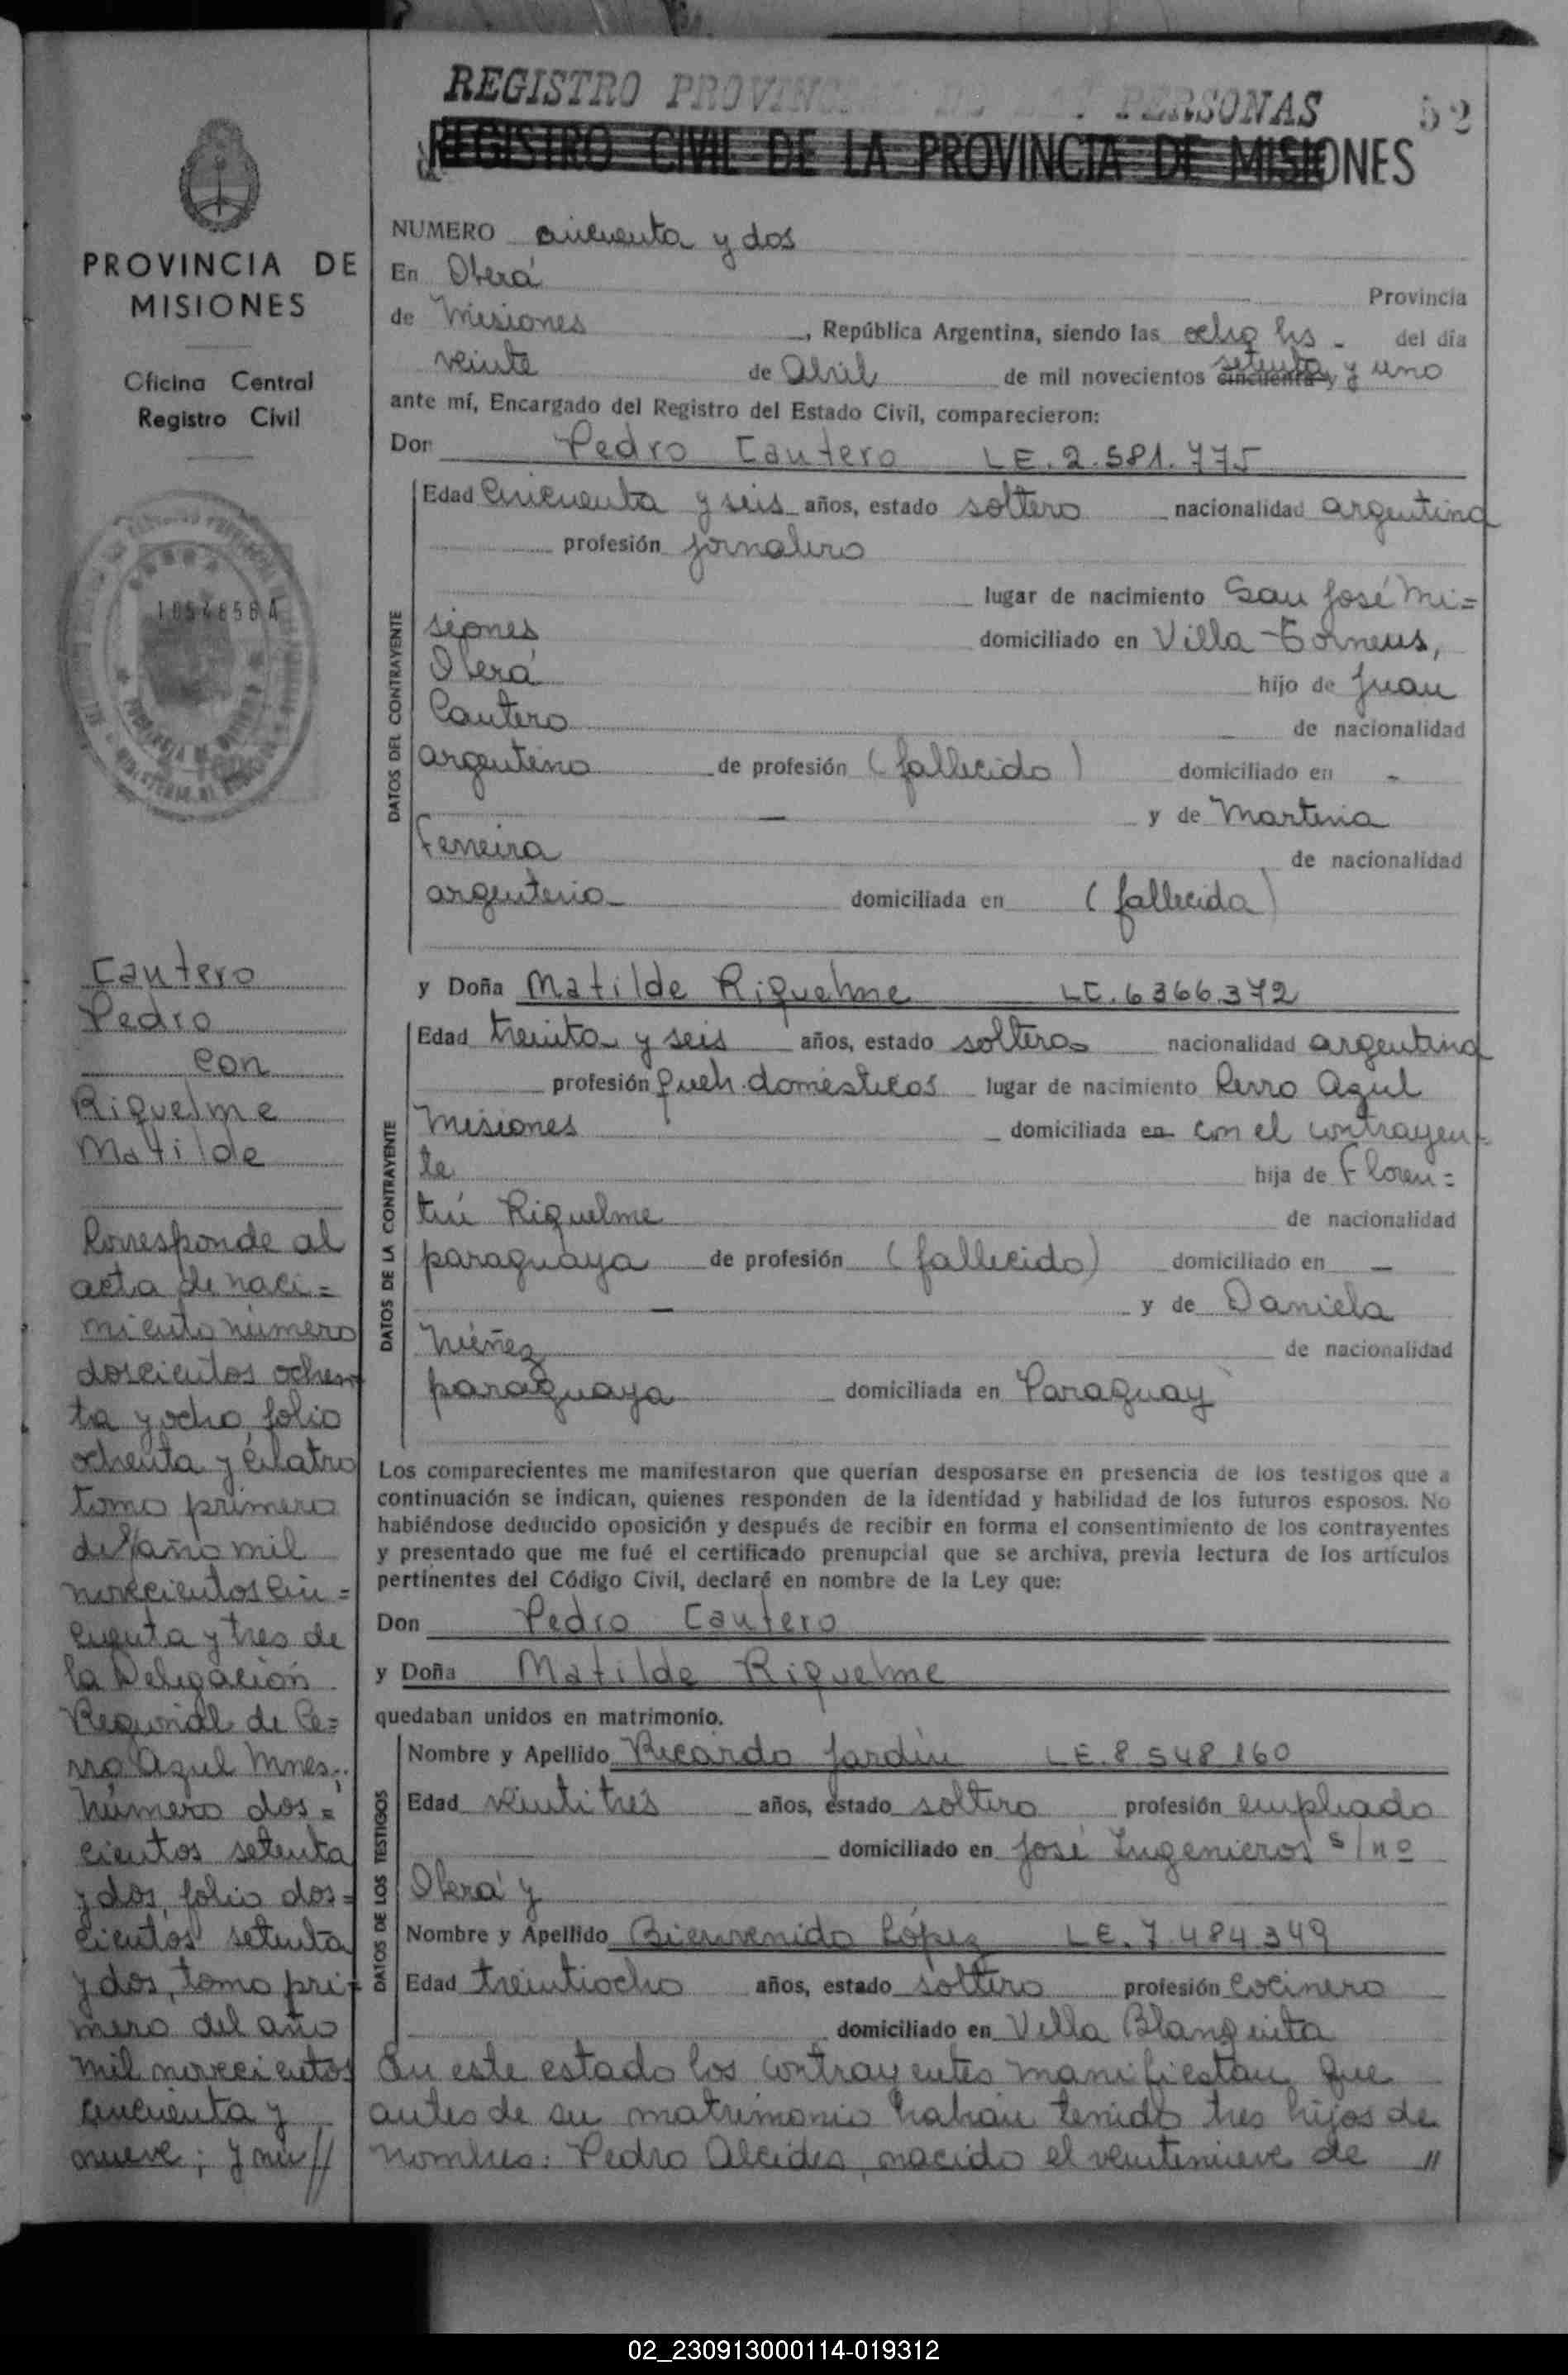 REGISTRO PROVINCIAL DE LAS PERSONAS 52
REGISTRO CIVIL DE LA PROVINCIA DE MISIONES
PROVINCIA DE
MISIONES
Oficina Central
Registro Civil
1054656 A
Cantero
Pedro
con
Riquelme
Matilde
Corresponde al
acta de naci=
miento número
doscientos ochen
ta y ocho, folio
ochenta y cuatro
tomo primero
del año mil
novecientos cin=
cuenta y tres de
la Delegación
Regional de Ce=
rro Azul Mnes.;
número dos=
cientos setenta
y dos, folio dos=
cientos setenta
y dos, tomo pri-
mero del año
mil novecientos
cincuenta y
nueve; y nú//
NUMERO cincuenta y dos
En Oberá Provincia
de Misiones, República Argentina, siendo las ocho hs - del día
veinte de Abril de mil novecientos cincuenta y setenta y uno
ante mí, Encargado del Registro del Estado Civil, comparecieron:
Don Pedro Cantero LE. 2.581.775
DATOS DEL CONTRAYENTE
Edad Cincuenta y seis años, estado soltero nacionalidad argentina
profesión jornalero
lugar de nacimiento San José Mi=
siones domiciliado en Villa
Oberá hijo de Juan
Cantero de nacionalidad
argentino de profesión (fallecido) domiciliado en -
— y de Martina
Ferreira de nacionalidad
argentino domiciliada en (fallecida)
y Doña Matilde Riquelme LC. 6366.372
DATOS DE LA CONTRAYENTE
Edad treinta y seis años, estado soltera nacionalidad argentina
profesión queh. domésticos lugar de nacimiento Cerro Azul
Misiones domiciliada en con el contrayen-
te hija de Floren=
tín Riquelme de nacionalidad
paraguaya de profesión (fallecido) domiciliado en —
— y de Daniela
Núñez de nacionalidad
paraguaya domiciliada en Paraguay
Los comparecientes me manifestaron que querían desposarse en presencia de los testigos que a
continuación se indican, quienes responden de la identidad y habilidad de los futuros esposos. No
habiéndose deducido oposición y después de recibir en forma el consentimiento de los contrayentes
y presentado que me fué el certificado prenupcial que se archiva, previa lectura de los artículos
pertinentes del Código Civil, declaré en nombre de la Ley que:
Don Pedro Cantero
y Doña Matilde Riquelme
quedaban unidos en matrimonio.
DATOS DE LOS TESTIGOS
Nombre y Apellido Ricardo Jardín LE. 8 548 160
Edad veintitres años, estado soltero profesión empleado
domiciliado en José Ingenieros s/nº
Oberá y
Nombre y Apellido Bienvenido López LE. 7.484.349
Edad treintiocho años, estado soltero profesión cocinero
domiciliado en Villa Blanquita
En este estado los contrayentes manifiestan que
antes de su matrimonio habían tenido tres hijos de
nombres: Pedro Alcides, nacido el veintenueve de //
02_230913000114-019312